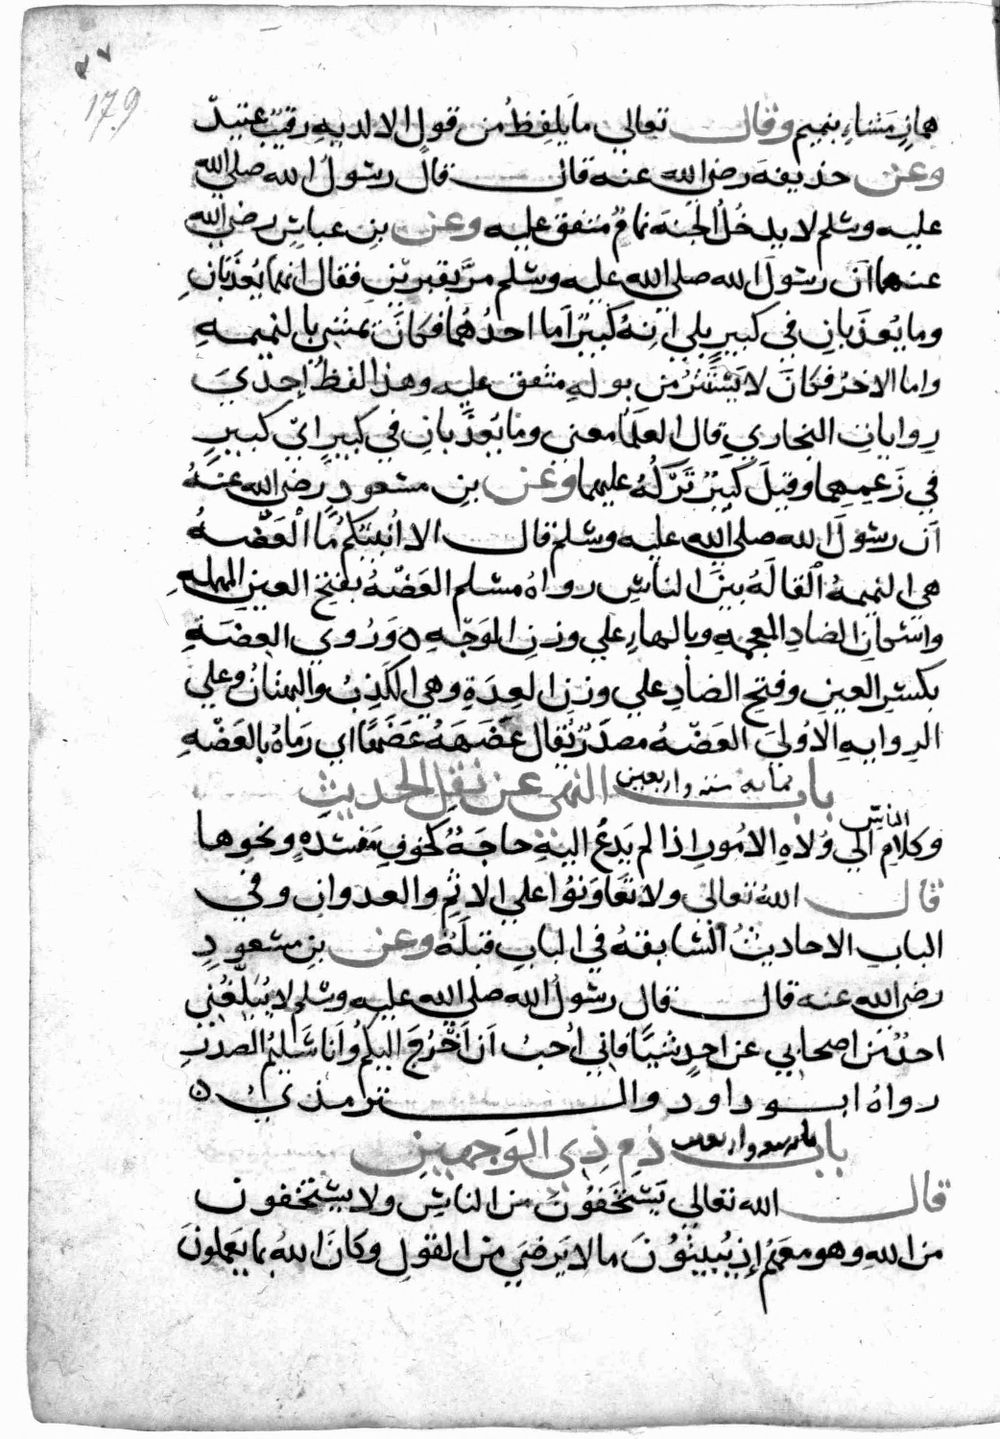 ٧٧
179
هماز مشاء بنميم وقال تعالى ما يلفظ من قول الا لديه رقيب عتيد
وعن حذيفة رضي الله عنه قال قال رسول الله صلى الله
عليه وسلم لا يدخل الجنة نمام متفق عليه وعن بن عباس رضي الله
عنهما ان رسول الله صلى الله عليه وسلم مر بقبرين فقال انهما يعذبان
وما يعذبان في كبير بلى انه كبير اما احدهما فكان يمشي بالنميمه
واما الاخر فكان لا يستتر من بوله متفق عليه وهذا لفظ احدى
روايات البخاري قال العلما معنى وما يعذبان في كبير اي كبير
في زعمهما وقيل كبير تركه عليهما وعن بن مسعود رضي الله عنه
ان رسول الله صلى الله عليه وسلم قال الا انبئكم ما العضه
هي النميمة القالة بين الناس رواه مسلم العضه بفتح العين المهمله
واسكان الضاد المعجمه وبالهاء على وزن الوجه ٥ وروي العضة
بكسر العين وفتح الضاد على وزن العدة وهي الكذب والبهتان وعلى
الروايه الاولى العضه مصدر يقال عضهه عضها اي رماه بالعضه
باب ثمانيه ستة واربعين النهي عن نقل الحديث
وكلام الناس الى ولاه الامور اذا لم يدع اليه حاجة كخوف مفسده ونحوها
قال الله تعالى ولا تعاونوا على الاثم والعدوان وفي
الباب الاحاديث السابقة في الباب قبله وعن بن مسعود
رضي الله عنه قال قال رسول الله صلى الله عليه وسلم لا يبلغني
احد من اصحابي عن احد شيئا فاني احب ان اخرج اليكم وانا سليم الصدر
رواه ابو داود والترمذي ٥
باب ذم ذي الوجهين
قال الله تعالى يستخفون من الناس ولا يستخفون
من الله وهو معهم إذ يبيتون ما لا يرضى من القول وكان الله بما يعملون